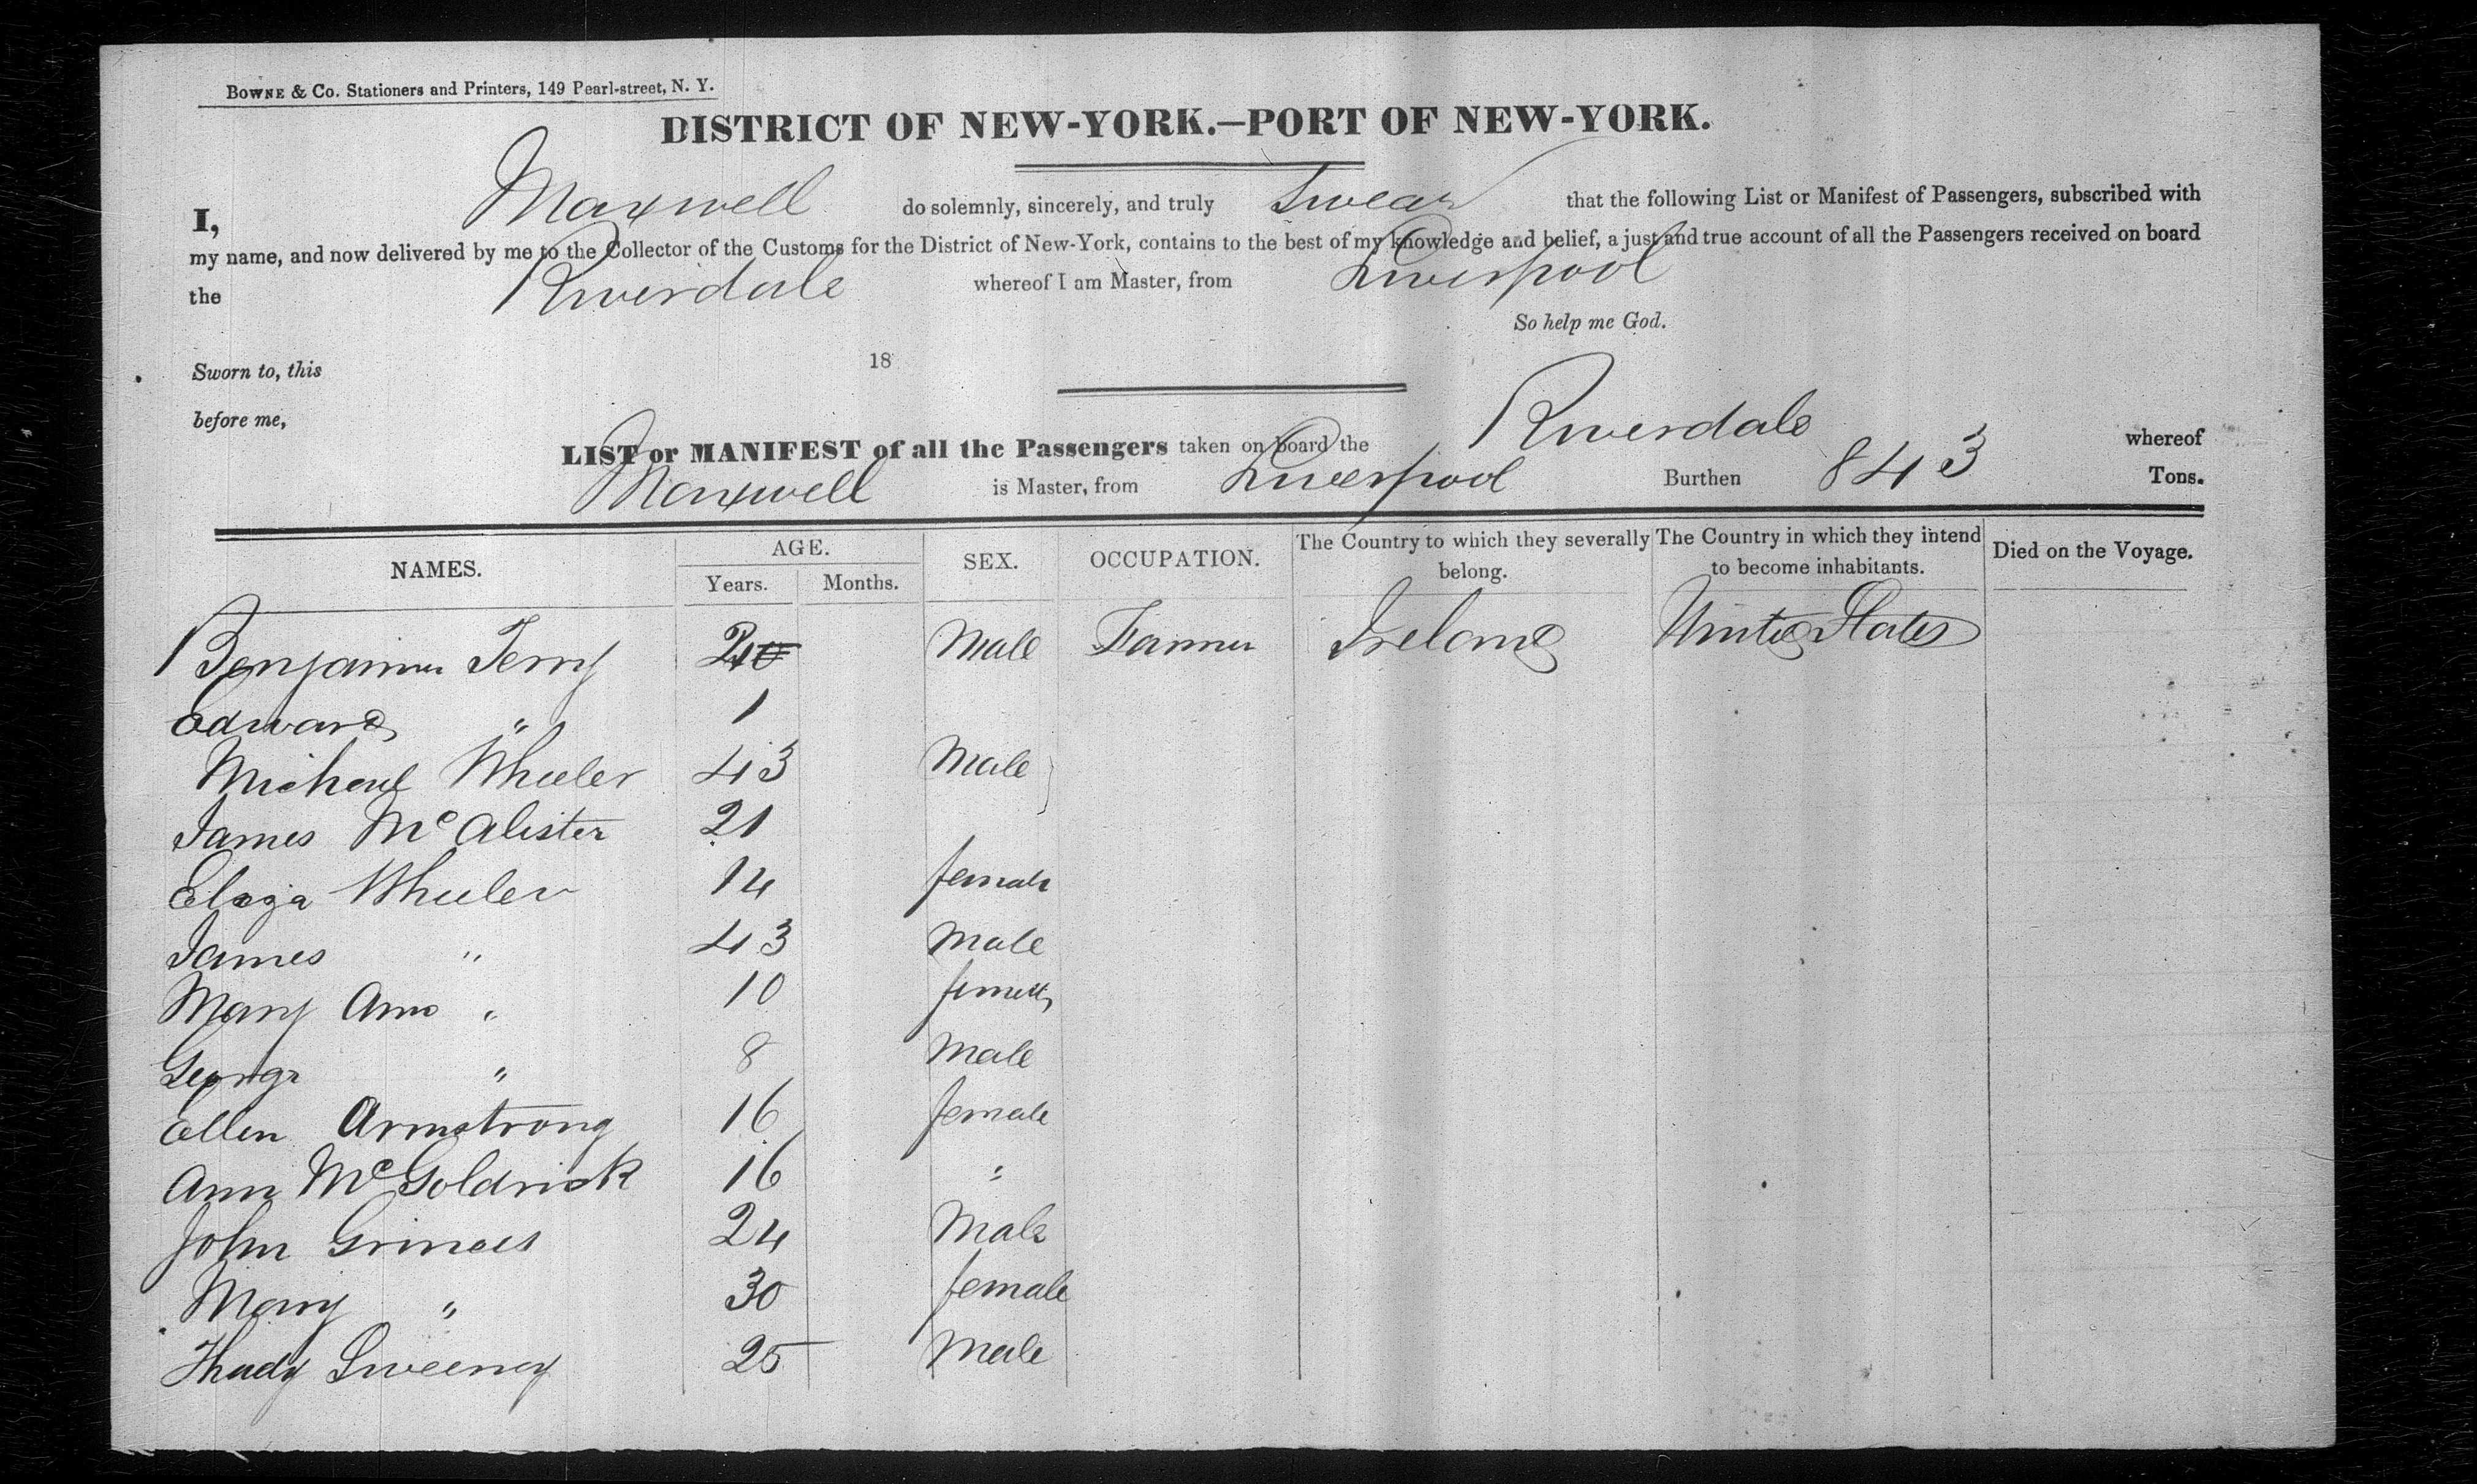 BOWNE & Co. Stationers and Printers, 149 Pearl-street, N. Y.
DISTRICT OF NEW-YORK.—PORT OF NEW-YORK.
I, Maxwell do solemnly, sincerely, and truly Swear that the following List or Manifest of Passengers, subscribed with
my name, and now delivered by me to the Collector of the Customs for the District of New-York, contains to the best of my knowledge and belief, a just and true account of all the Passengers received on board
the Riverdale whereof I am Master, from Liverpool
So help me God.
Sworn to, this 18
before me,
LIST or MANIFEST of all the Passengers taken on board the Riverdale whereof
Maxwell is Master, from Liverpool Burthen 843 Tons.
NAMES. AGE. SEX. OCCUPATION. The Country to which they severally belong. The Country in which they intend to become inhabitants. Died on the Voyage.
Years. Months.
Benjamin Terry Male Farmer Ireland United States
Edward " 1
Michael Wheeler 43 Male
James Mc Alister 21
Eliza Wheeler 14 female
James " 43 Male
Mary Ann " 10 female
George " 8 Male
Ellen Armstrong 16 female
Ann McGoldrick 16 "
John Grimes 24 Male
Mary " 30 female
Thady Sweeney 25 Male